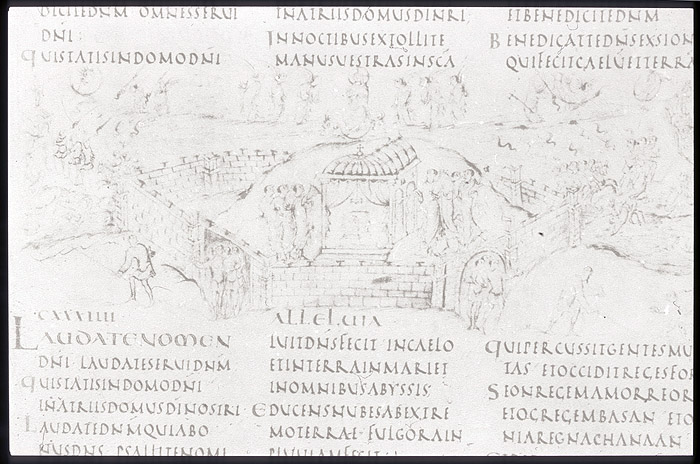 DICITEDNM OMNESSERUI
DNI:
QUISTATISINDOMODNI
INATRIISDOMUSDINRI
INNOCTIBUSEXTOLLITE
MANUSUESTRASINSCA
ETBENEDICITEDNM
BENEDICATTEDNSEXSION
QUIFECITCAELUETTERRA
CXXXIIII
LAUDATENOMEN
DNI LAUDATESERUIDNM
QUISTATISINDOMODNI
INATRIISDOMUSDINOSTRI
LAUDATEDNMQUIABO
NUSDNS PSALLITENOMI
ALLELUIA
LUITDNSFECIT INCAELO
ETINTERRAINMARIET
INOMNIBUSABYSSIS
EDUCENSNUBESABEXTRE
MOTERRAE FULGORAIN
PLUUIAMFECIT
QUIPERCUSSITGENTESMU
TAS ETOCCIDITREGESFOR
SEONREGEMAMORREOR
ETOGREGEMBASAN ETO
NIAREGNACHANAAN